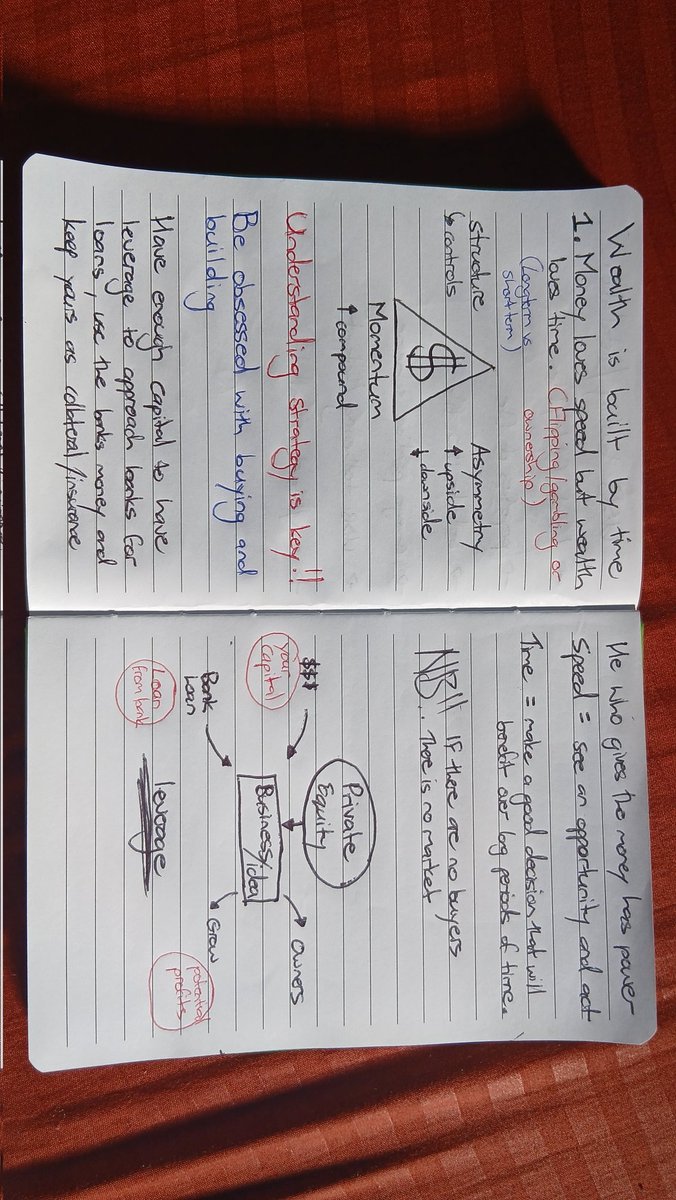 Wealth is built by time
1. Money loves speed but wealth
loves time. (Flipping/gambling or
ownership)
(Longterm vs
short term)
Structure
↳ controls
Asymmetry
↑ upside
↓ downside
$
Momentum
↑ compound
Understanding strategy is key!!
Be obsessed with buying and
building
Have enough capital to have
leverage to approach banks for
loans, use the banks money and
keep yours as collateral/insurance
He who gives the money has power
Speed = see an opportunity and act
Time = make a good decision that will
benefit over long periods of time.
NB!! If there are no buyers
.. There is no market
Private
Equity
$$$
Your
Capital
Business/idea
Owners
Bank
Loan
Grow
Loan
from bank
leverage
potential
profits